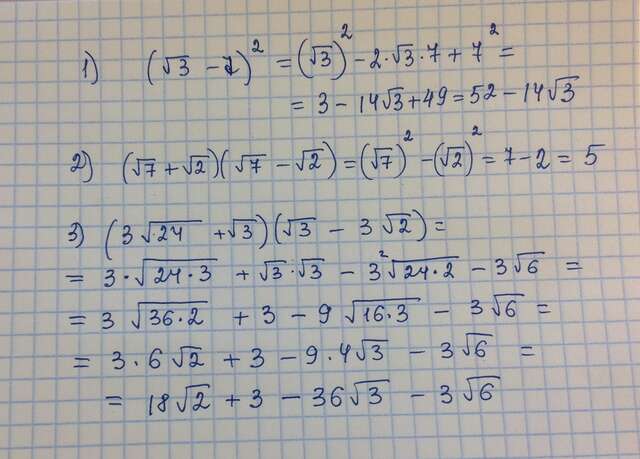 1) (√3 - 7)² = (√3)² - 2·√3·7 + 7² =
= 3 - 14√3 + 49 = 52 - 14√3
2) (√7 + √2)(√7 - √2) = (√7)² - (√2)² = 7 - 2 = 5
3) (3√24 + √3)(√3 - 3√2) =
= 3·√24·3 + √3·√3 - 3²√24·2 - 3√6 =
= 3√36·2 + 3 - 9√16·3 - 3√6 =
= 3·6√2 + 3 - 9·4√3 - 3√6 =
= 18√2 + 3 - 36√3 - 3√6